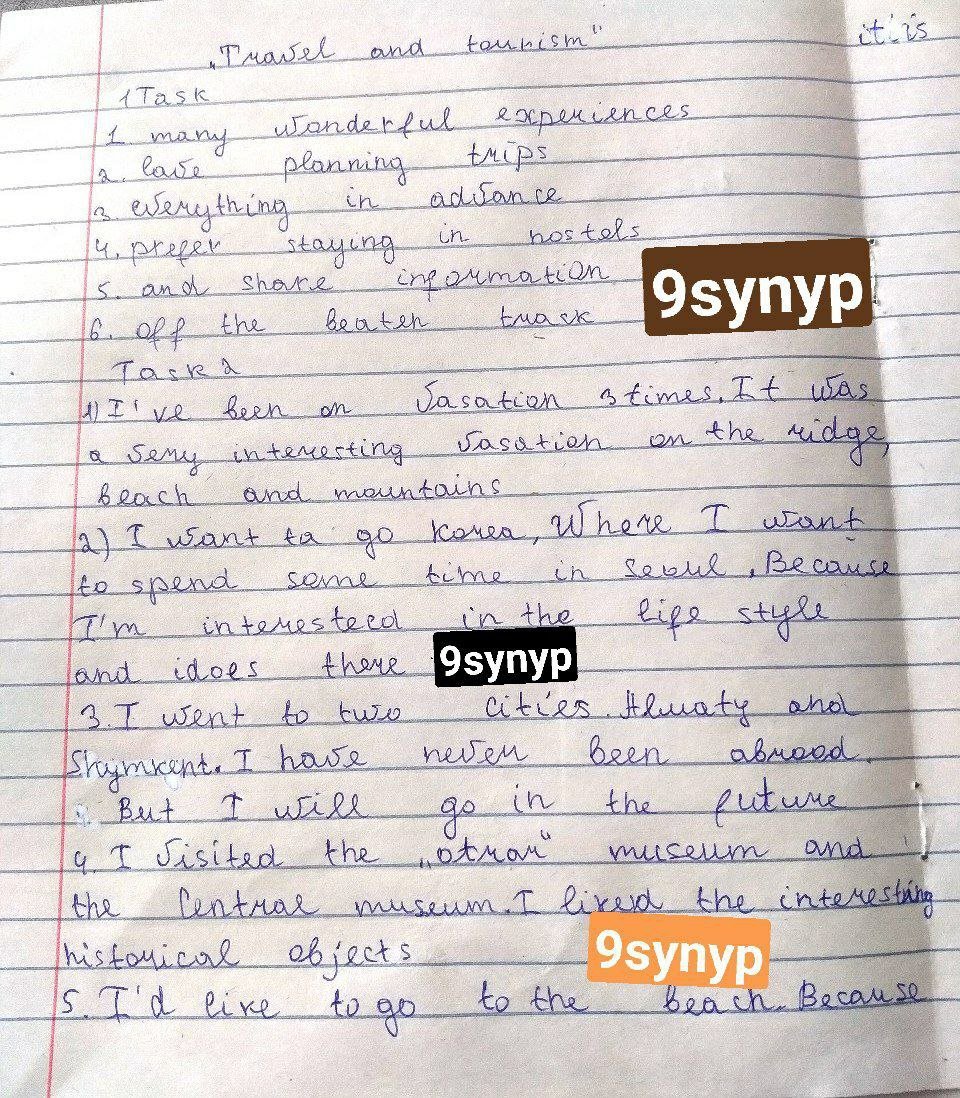 „Travel and tourism" it is
1 Task
1. many wonderful experiences
2. love planning trips
3 everything in advance
4. prefer staying in hostels
5. and share information
9synyp
6. off the beaten track
Task 2
1) I've been on vasation 3 times. It was
a very interesting vasation on the ridge,
beach and mountains
2) I want to go Korea, Where I want
to spend some time in Seoul. Because
I'm interested in the life style
and idoes there
9synyp
3. I went to two cities. Almaty and
Shymkent. I have never been abroad.
But I will go in the future
4. I visited the „otrar" museum and
the Central museum. I liked the interesting
historical objects
9synyp
5. I'd like to go to the beach. Because